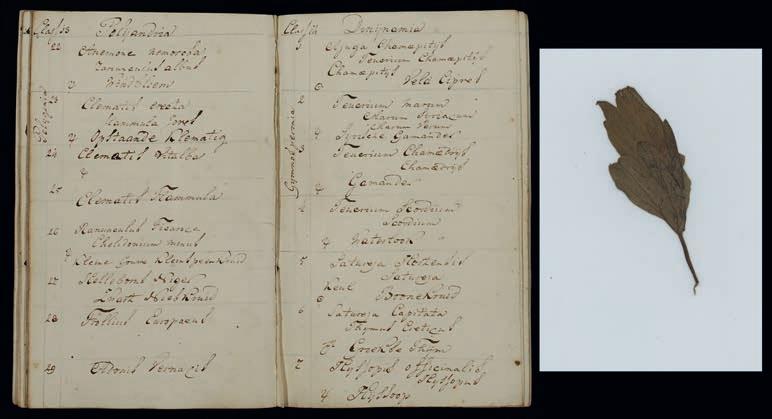 Class 13 Polyandria
22 Anemone nemorosa
Ranunculus albus
Windbloem
23 Clematis erecta
flammula Jovis
Opstaande Klematis
24 Clematis Vitalba
25
Clematis Flammula
26 Ranunculus Ficaria
Chelidonium minus
Kleine Gouwe Kleinspeenkruid
27 Helleborus Niger
Zwart Nieskruid
28 Trollius Europaeus
29 Adonis Vernalis
Polyginia
Class 14 Dinynamia
Ajuga Chamaepitys
Teucrium Chamaepitys
Chamaepitys
Veld Cipres
2 Teucrium marum
Marum Syriacum
Marum Verum
Syrische Gamander
Teucrium Chamædrys
Chamædrys
Gamander
Teucrium Scordium
Scordium
Waterlook
5 Satureja Hortensis
Satureja
Keul
Boonekruid
6 Satureja Capitata
Thymus Creticus
Creekse Thym
7 Hyssopus officinalis
Hyssopus
Hyssoop
Gymnospermia